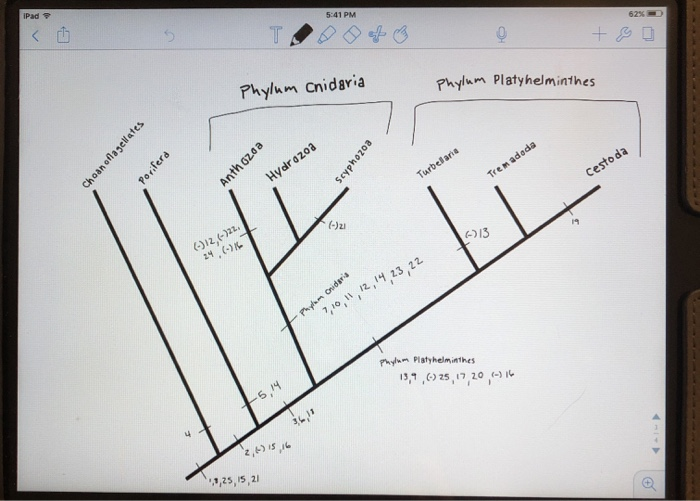 iPad
5:41 PM
62%
T
Phylum Cnidaria
Phylum Platyhelminthes
Choanoflagellates
Porifera
Anthozoa
Hydrozoa
Scyphozoa
Turbellaria
Tremadoda
Cestoda
(-)12,(-)22,
24,(-)16
(-)21
(-)13
19
Phylum Cnidaria
7,10,11,12,14,23,22
Phylum Platyhelminthes
13,9,(-)25,17,20,(-)16
5,14
4
3,6,18
2,(-)15,16
25,15,21